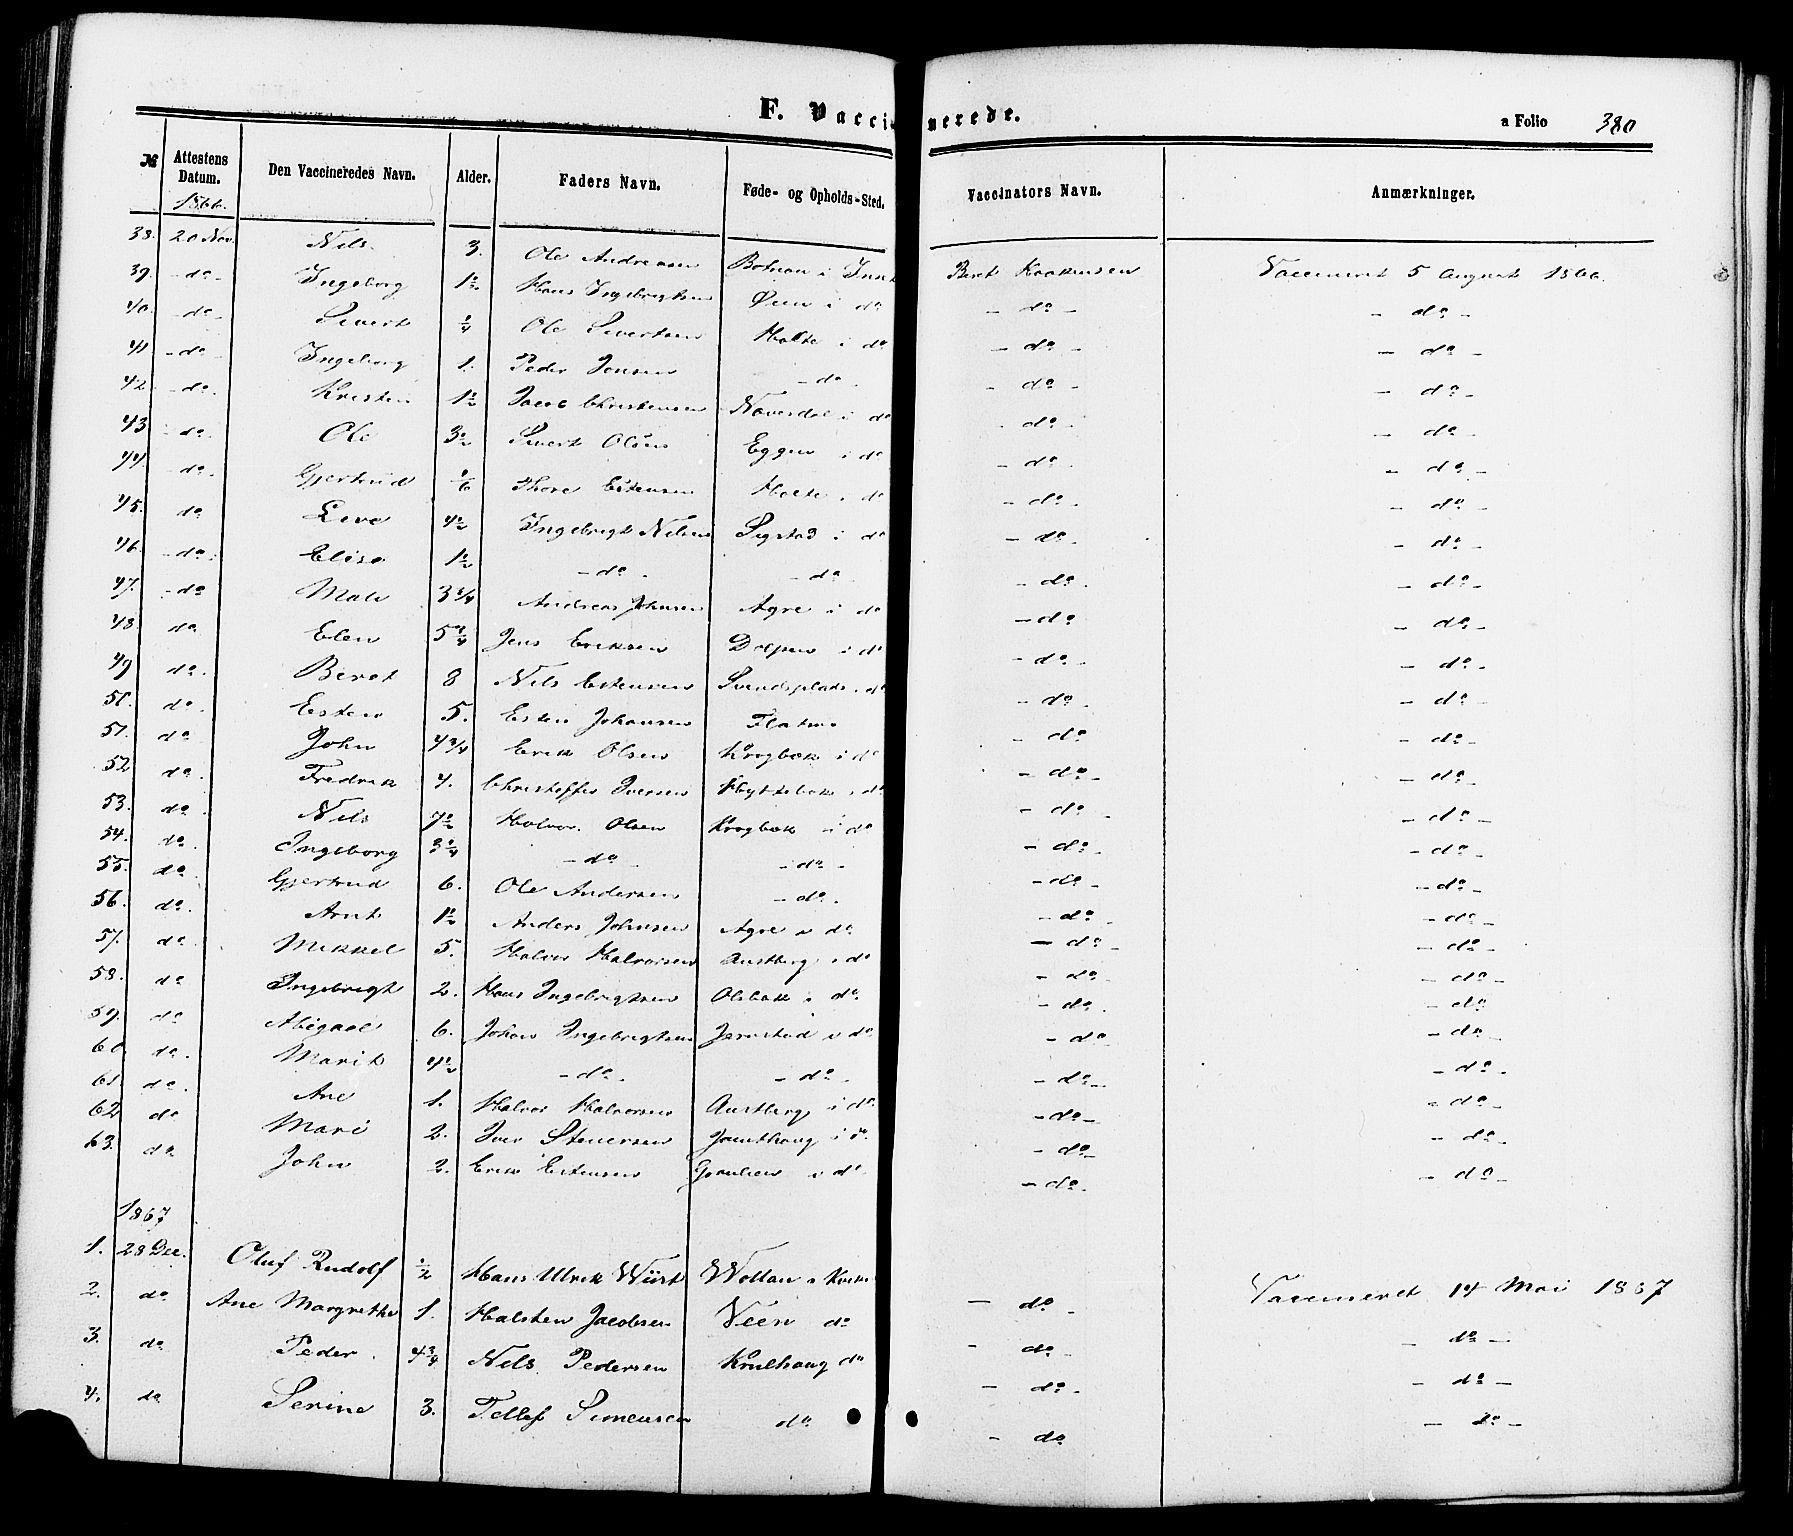 F. Vaccinerede.
a Folio 380
№ Attestens Datum. Den Vaccineredes Navn. Alder. Faders Navn. Føde- og Opholds-Sted. Vaccinators Navn. Anmærkninger.
1866.
38. 20 Nov. Nils. 3. Ole Andreasen i Beret Vaccineret 5 August 1866.
39. - do - Ingeborg 1½ Hans Ingebrigtsen Øien i do - do - - do -
40. - do. Sivert ¼ Ole Sivertsen Holte i do - do - - do -
41 - do - Ingeborg 1. Peder Jonsen - do. - do - - do -
42. - do. Kristen 1½ Jacob Christensen i do - do - - do -
43 - do. Ole 3½ Sivert Olsen Eggen i do - do - - do -
44. do. Gjertrud 1/6 Thore Estensen Holte i do - do - - do -
45. do. Live 4½ Ingebrigt Nilsen i do - do - - do -
46. - do. Elise 1½ - do. - do - do. - do -
47. - do Mali 3¾ Andreas Johnsen Agre i do - do - do -
48. do Elen 5¼ Jens Eriksen i do - do. - do -
49 do. Beret 8 Nils Estensen Svendsplads i do - do - - do -
50. do. Esten 5. Esten Johansen Flatmo - do - do -
51. do John 4¾ Erik Olsen Krogbæk i do - do - - do -
52 do. Fredrik 4. Christoffer Iversen Hyttebak i do - do - - do -
53. do. Nils 7½ Halvor Olsen Krogbæk i do - do - - do -
54. do. Ingeborg 3¼ - do - - do - - do - - do -
55. do. Gjertrud 6. Ole Andersen - do. - do - - do -
56. do. Arnt 1½ Anders Johnsen Agre i do - do - - do -
57. do Mikkel 5. Halvor Halvorsen Austberg i do - do - - do -
58. do Ingebrigt 2. Hans Ingebrigtsen i do. - do - - do
59. do Abigael 6. Johan Ingebrigtsen Jernstad i do - do - - do -
60 do. Marit 4½ - do. - do. - do - - do -
61. do. Ane 1. Halvor Halvorsen Austberg i do. - do - - do -
62 do Mari 2. Iver Stenersen i do. - do - - do -
63. do John 2. Erik Estensen i do - do. - do -
1867
1. 28 Dec. Oluf Rudolf ½ Hans Ulrik Würt Wollan i - do - Vaccineret 14 Mai 1867
2. do. Ane Margrethe 1. Halsten Jacobsen Veen do - do. - do -
3. do Peder. 4¾ Nils Pedersen Krulhaug do - do. - do -
4. do Serine 3. Tellef Simensen do. - do - do -